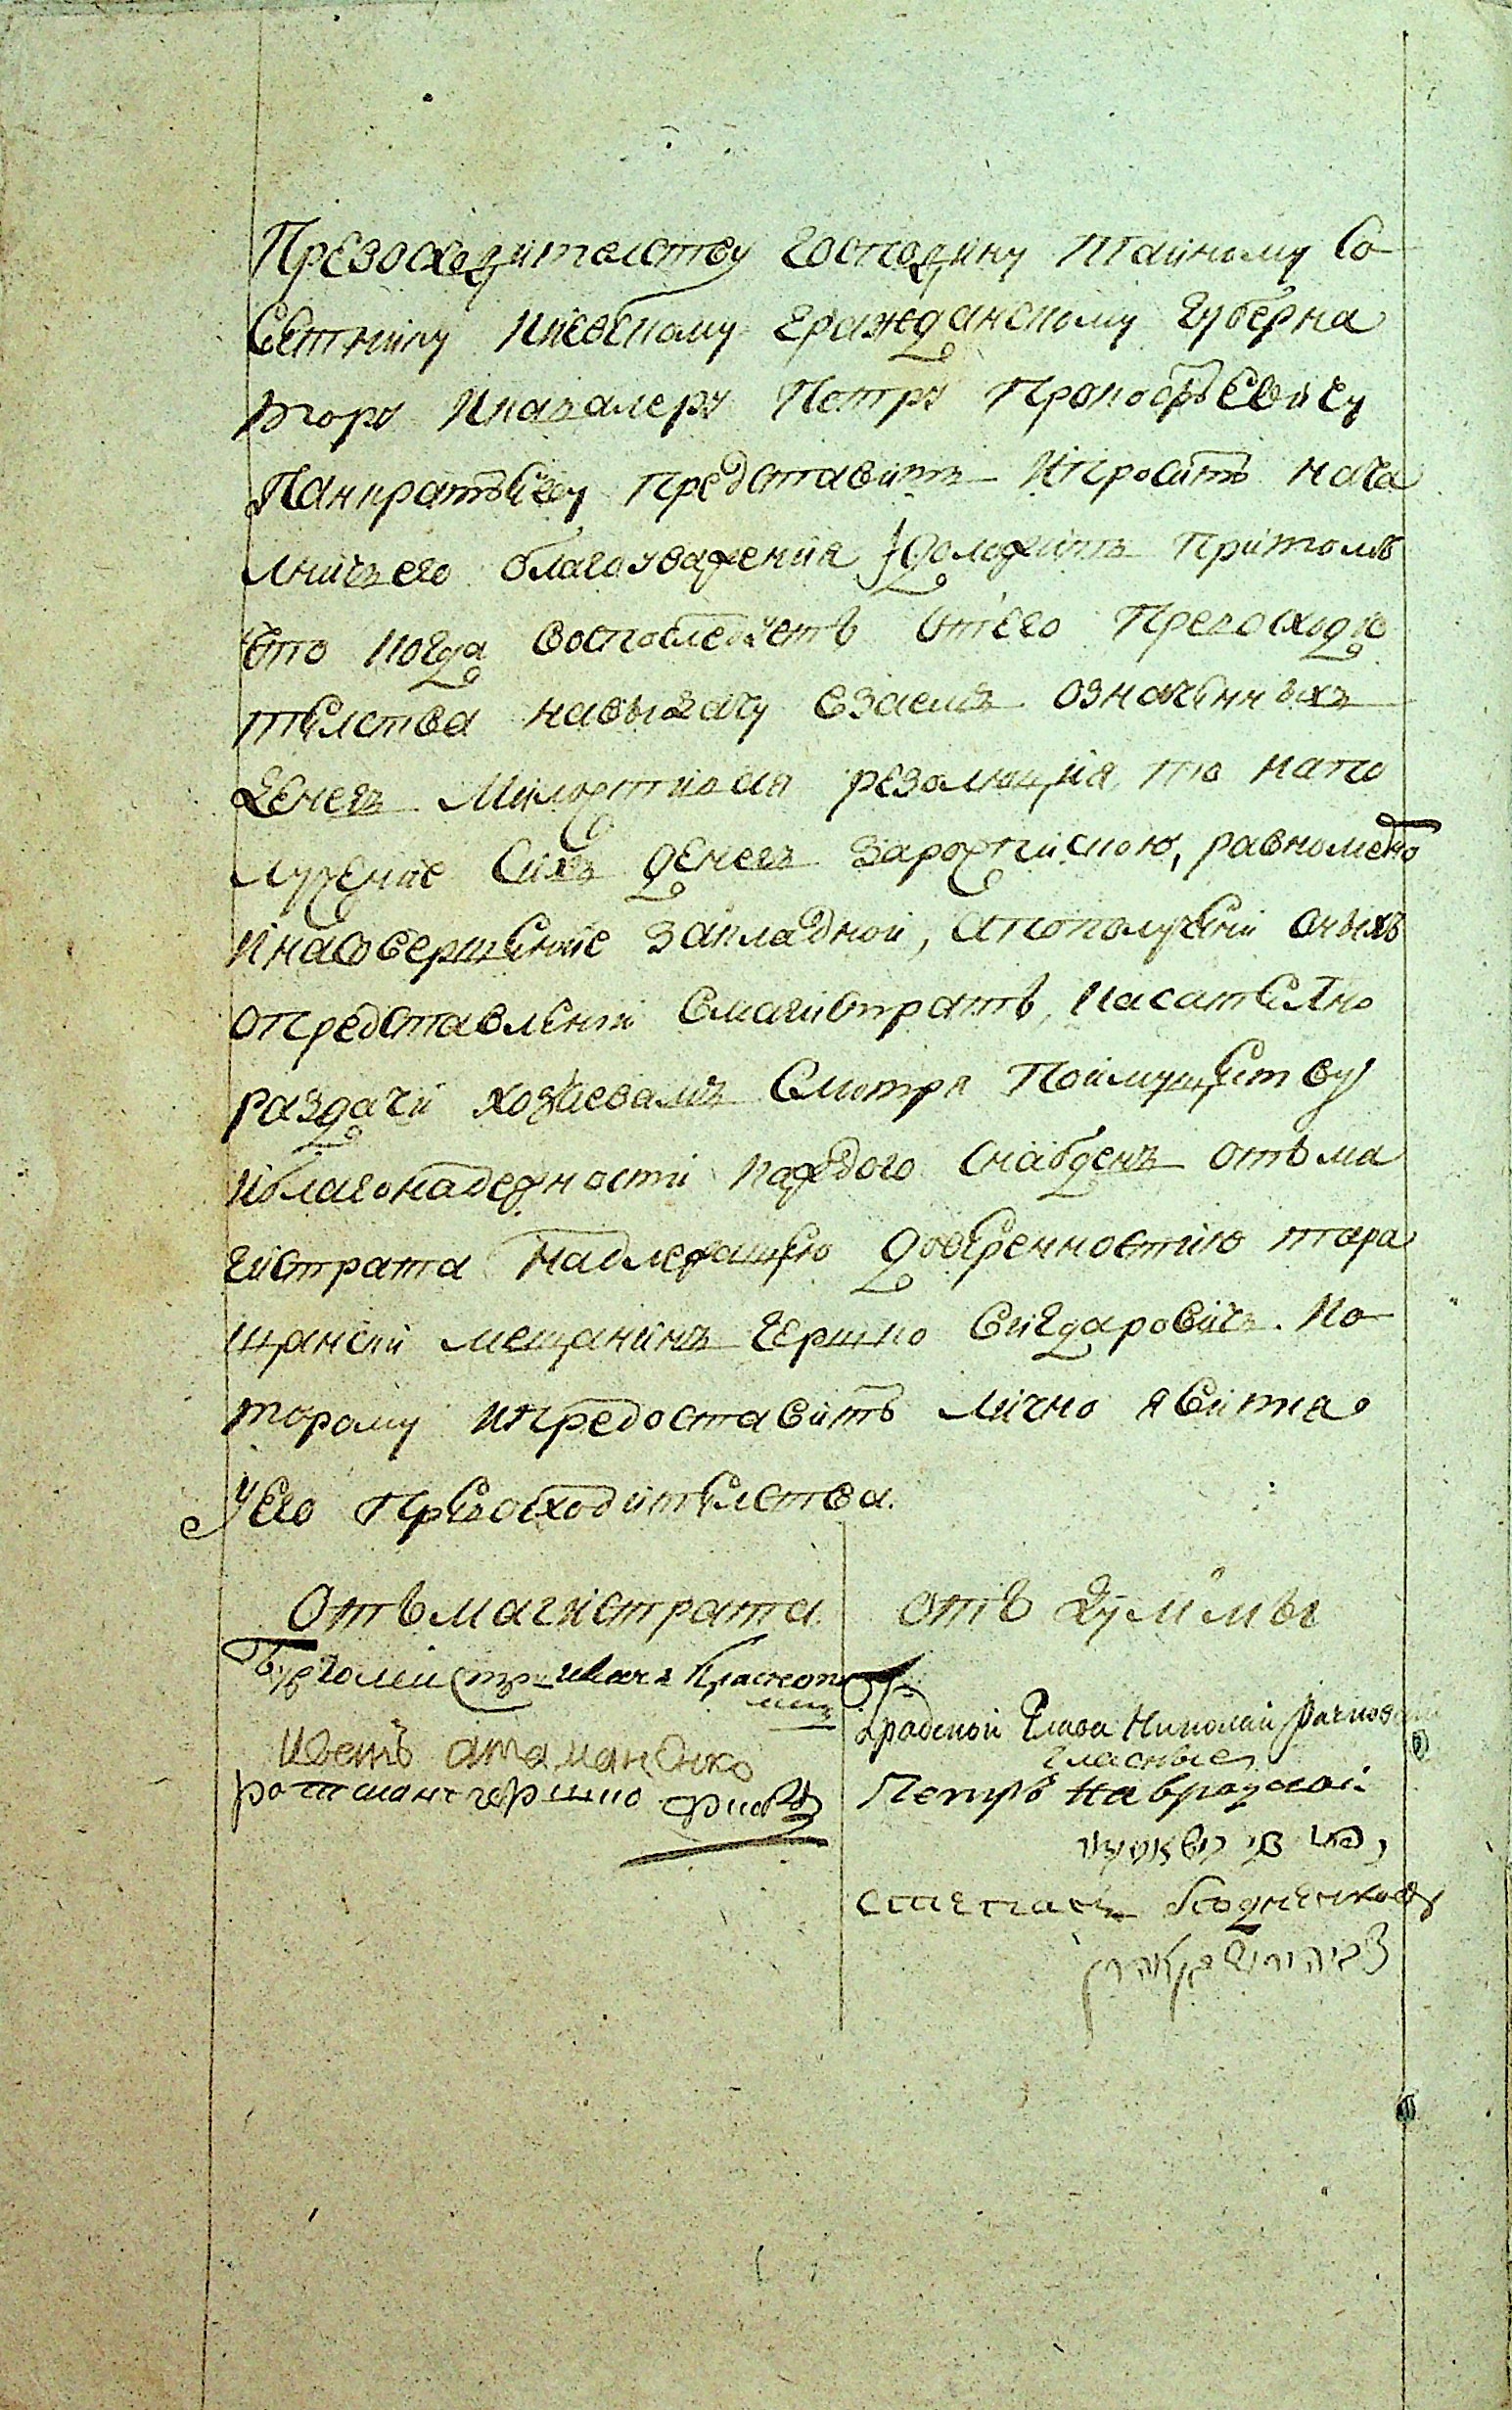 Превосходителству господину Тайному Со
Светнику Киевскому гражданскому губерна
тору Икавалеру Петру Прокофьевичу
Панкратьеву представить Ипросить нача
лничего благоуважения доложить Притомъ
что когда воспоследуетъ отъего Превосходи
телства навыдачу взаемъ означенныхъ
денегъ Милостивая резолюция то напо
лучение Сихъ денегъ зароспискою, равномерно
Инасовершение закладной, апополучении оныхъ
опредставлении вмагистратъ, касателно
раздачи хозяевамъ Смотря Поимуществу
Иблагонадежности каждого снабденъ отъ ма
гистрата надлежащею доверенностию тара
щанский мещанинъ Гершко Сигдаровичъ. Ко
торому ипредоставить лично явитца
Уего Превосходителства.
Отъ магистрата
Бургомистръ
Ратманъ Гершко
отъ думмы
Градской Глава Николай Рачковский
Гласные
Петръ Навродской
Степанъ